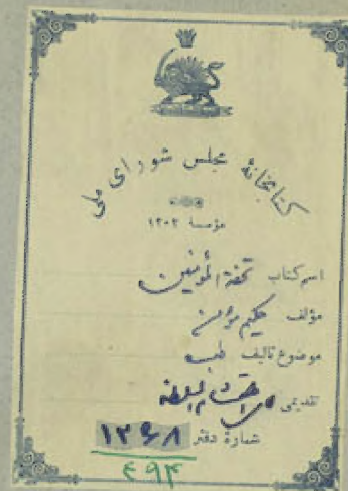 کتابخانهٔ مجلس شورای ملی
مؤسسهٔ ۱۳۰۲
اسم کتاب تحفة المؤمنین
مؤلف حکیم مؤمن
موضوع تالیف طب
تقدیمی احتشام السلطنه
شمارهٔ دفتر ۱۲۶۸
۴۹۴